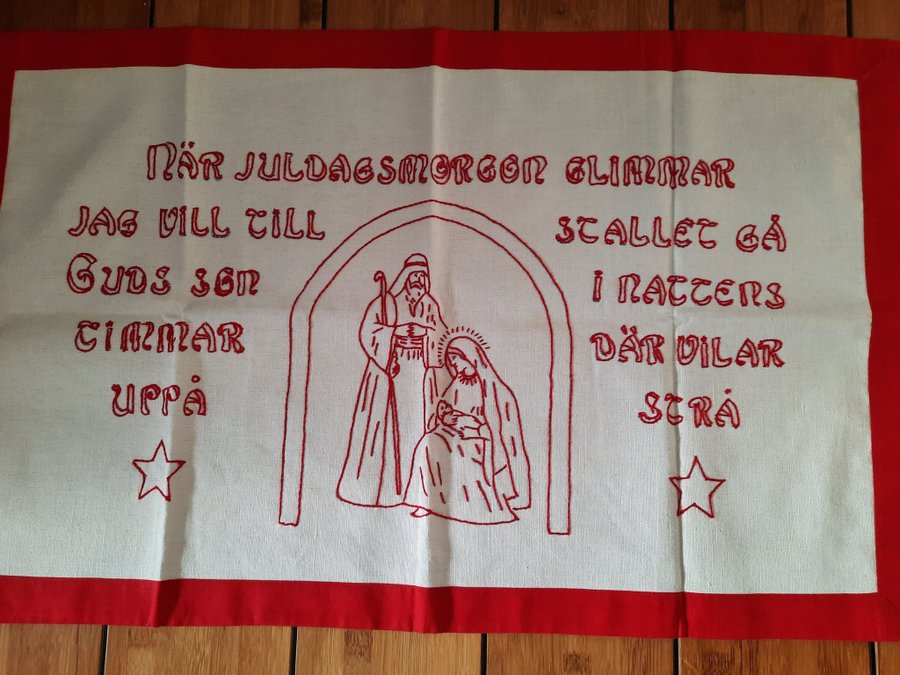 NÄR JULDAGSMORGON GLIMMAR
JAG VILL TILL STALLET GÅ
GUDS SON I NATTENS
TIMMAR DÄR VILAR
UPPÅ STRÅ